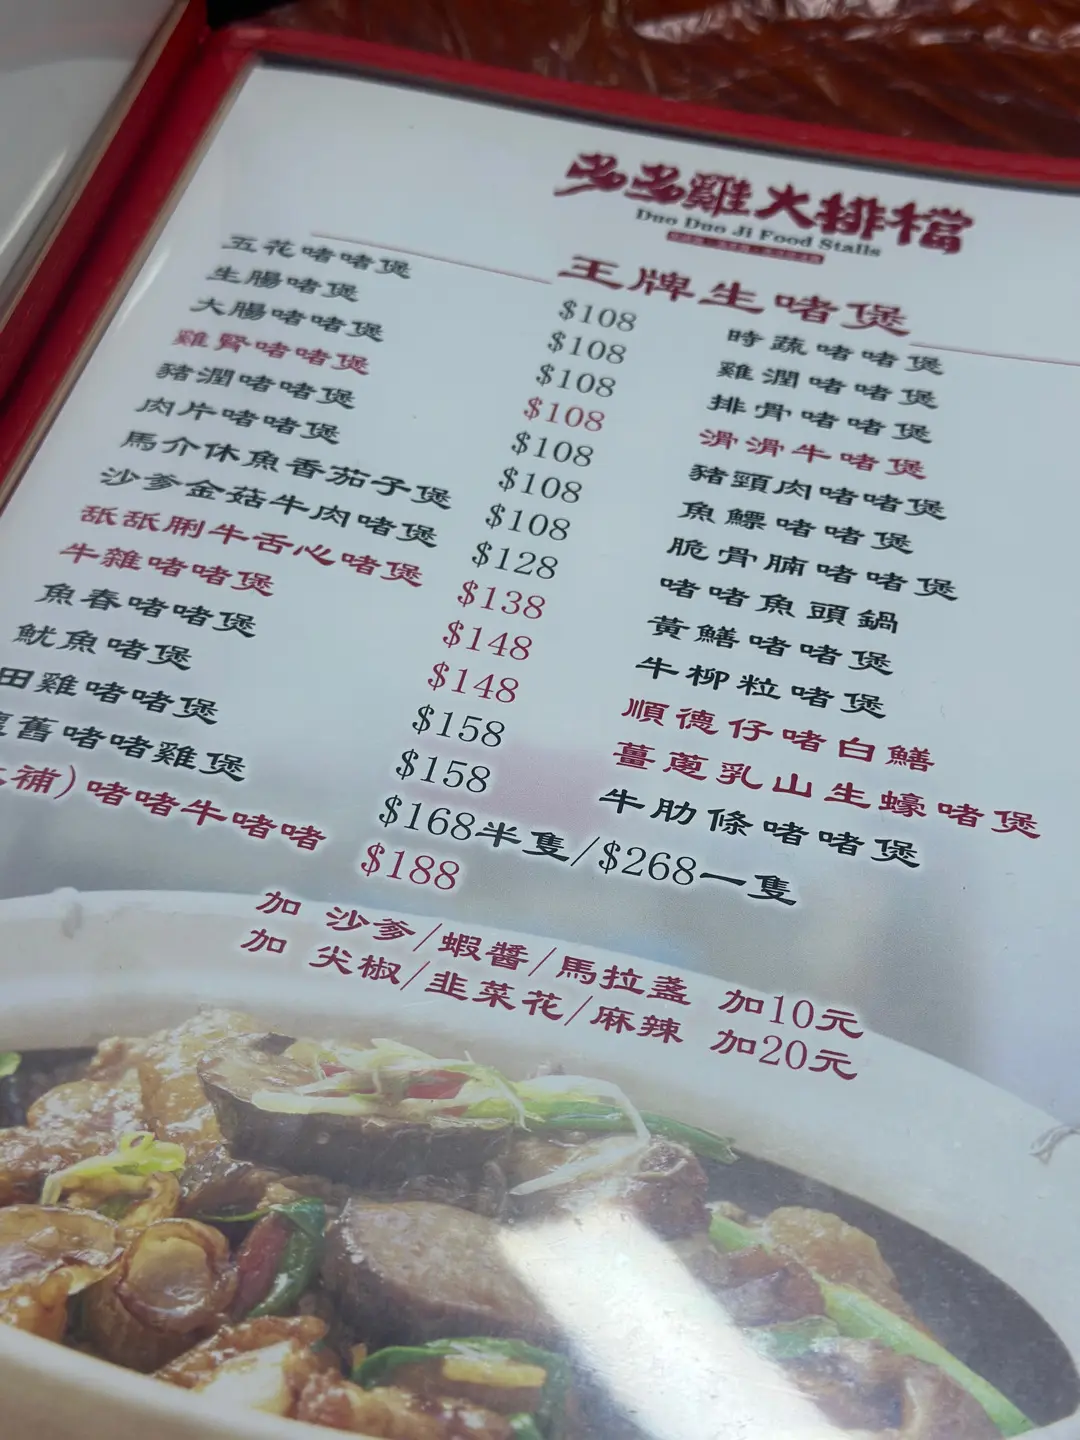 多多雞大排檔
Duo Duo Ji Food Stalls
王牌生啫煲
五花啫啫煲 $108
生腸啫煲 $108
大腸啫啫煲 $108
雞腎啫啫煲 $108
豬潤啫啫煲 $108
肉片啫啫煲 $108
馬介休魚香茄子煲 $108
沙爹金菇牛肉啫煲 $128
舐舐脷牛舌心啫煲 $138
牛雜啫啫煲 $148
魚春啫啫煲 $148
魷魚啫煲 $158
田雞啫啫煲 $158
舊啫啫雞煲 $168半隻/$268一隻
補)啫啫牛啫啫 $188
時蔬啫啫煲
雞潤啫啫煲
排骨啫啫煲
滑滑牛啫煲
豬頸肉啫啫煲
魚鰾啫啫煲
脆骨腩啫啫煲
啫啫魚頭鍋
黃鱔啫啫煲
牛柳粒啫煲
順德仔啫白鱔
薑蔥乳山生蠔啫煲
牛肋條啫啫煲
加 沙爹/蝦醬/馬拉盞 加10元
加 尖椒/韭菜花/麻辣 加20元